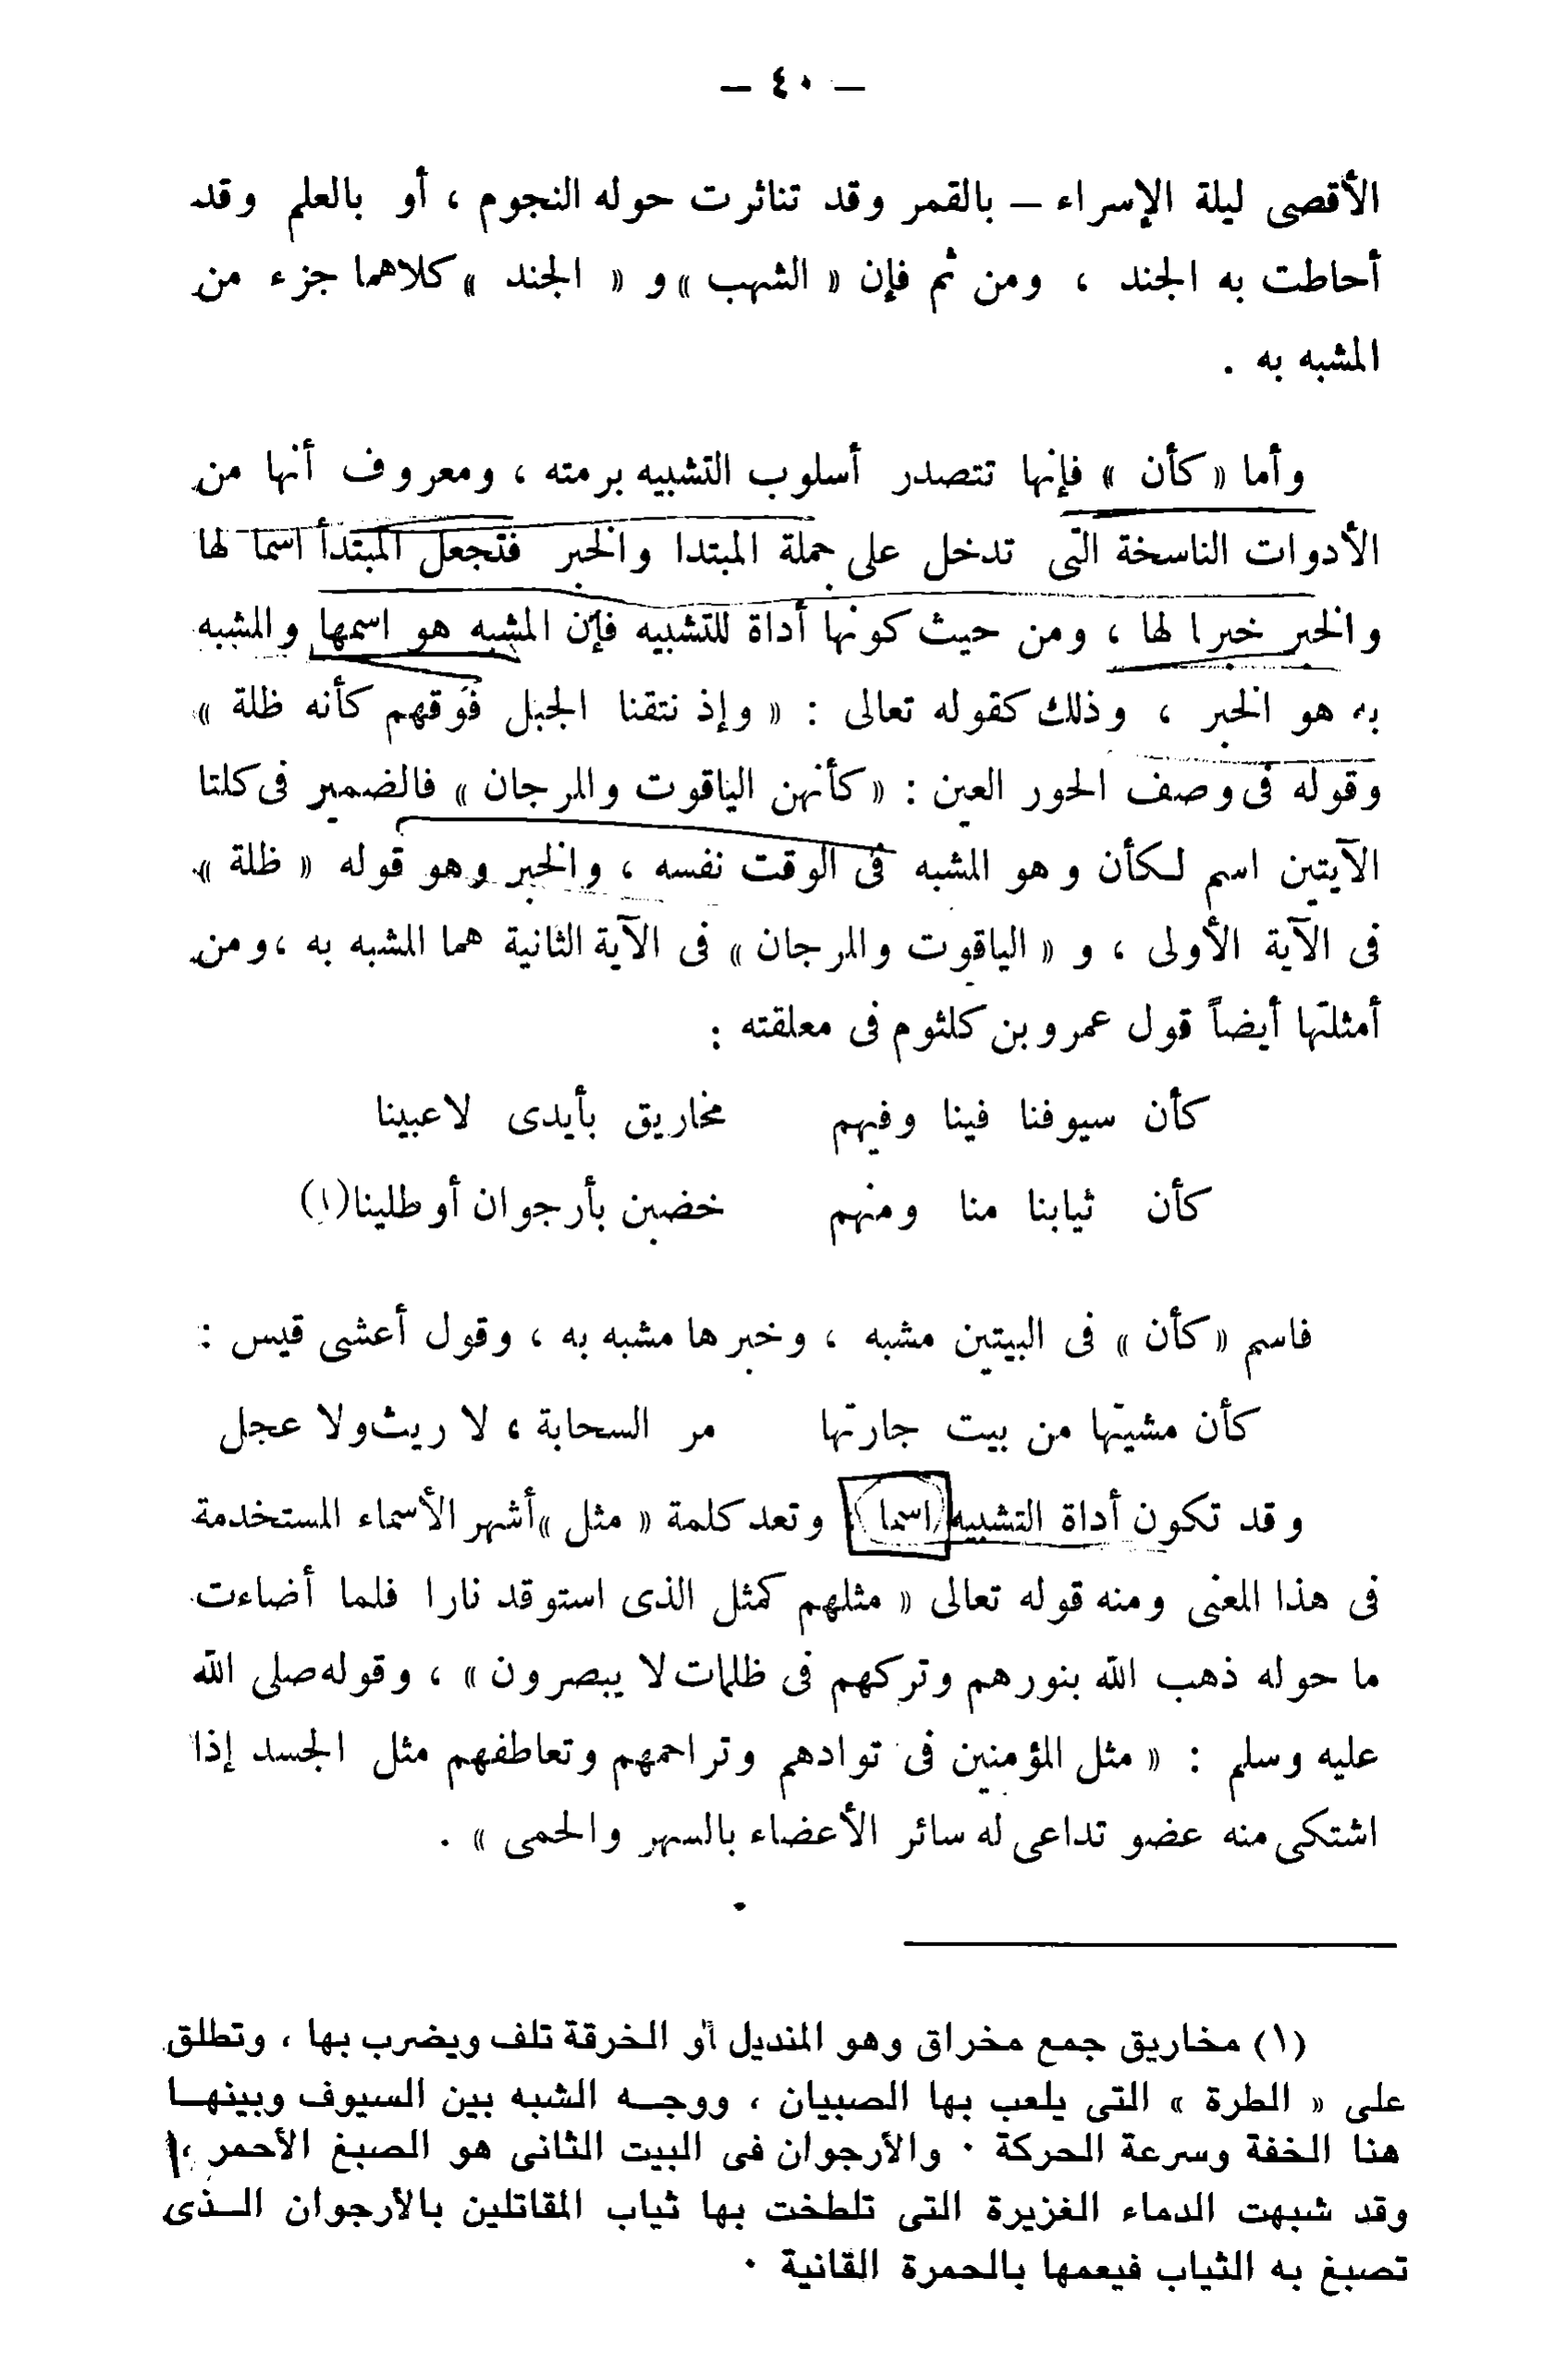 — ٤٠ —
الأقصى ليلة الإسراء — بالقمر وقد تناثرت حوله النجوم ، أو بالعلم وقد
أحاطت به الجند ، ومن ثم فإن « الشهب » و « الجند » كلاهما جزء من
المشبه به .
وأما « كأن » فإنها تتصدر أسلوب التشبيه برمته ، ومعروف أنها من
الأدوات الناسخة التى تدخل على جملة المبتدا والخبر فتجعل المبتدأ اسما لها
والخبر خبرا لها ، ومن حيث كونها أداة للتشبيه فإن المشبه هو اسمها والمشبه
به هو الخبر ، وذلك كقوله تعالى : « وإذ نتقنا الجبل فوقهم كأنه ظلة »
وقوله فى وصف الحور العين : « كأنهن الياقوت والمرجان » فالضمير فى كلتا
الآيتين اسم لكأن وهو المشبه فى الوقت نفسه ، والخبر وهو قوله « ظلة »
فى الآية الأولى ، و « الياقوت والمرجان » فى الآية الثانية هما المشبه به ، ومن
أمثلتها أيضاً قول عمرو بن كلثوم فى معلقته :
كأن سيوفنا فينا وفيهم مخاريق بأيدى لاعبينا
كأن ثيابنا منا ومنهم خضبن بأرجوان أو طلينا(١)
فاسم « كأن » فى البيتين مشبه ، وخبرها مشبه به ، وقول أعشى قيس :
كأن مشيتها من بيت جارتها مر السحابة ، لا ريث ولا عجل
وقد تكون أداة التشبيه اسما ، وتعد كلمة « مثل » أشهر الأسماء المستخدمة
فى هذا المعنى ومنه قوله تعالى « مثلهم كمثل الذى استوقد نارا فلما أضاءت
ما حوله ذهب الله بنورهم وتركهم فى ظلمات لا يبصرون » ، وقوله صلى الله
عليه وسلم : « مثل المؤمنين فى توادهم وتراحمهم وتعاطفهم مثل الجسد إذا
اشتكى منه عضو تداعى له سائر الأعضاء بالسهر والحمى » .
(١) مخاريق جمع مخراق وهو المنديل أو الخرقة تلف ويضرب بها ، وتطلق
على « الطرة » التى يلعب بها الصبيان ، ووجـه الشبه بين السيوف وبينهـا
هنا الخفة وسرعة الحركة . والأرجوان فى البيت الثانى هو الصبغ الأحمر ،
وقد شبهت الدماء الغزيرة التى تلطخت بها ثياب المقاتلين بالأرجوان الـذى
تصبغ به الثياب فيعمها بالحمرة القانية .